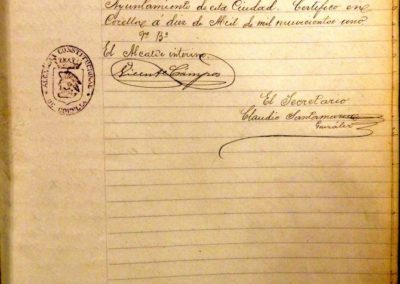 Ayuntamiento de esta Ciudad. Certifico en
Corella á diez de Abril de mil novecientos uno
Vº Bº
El Alcalde interino
Vicente Campos
El Secretario
Claudio Santamaria
González
ALCALDIA CONSTITUCIONAL
DE CORELLA